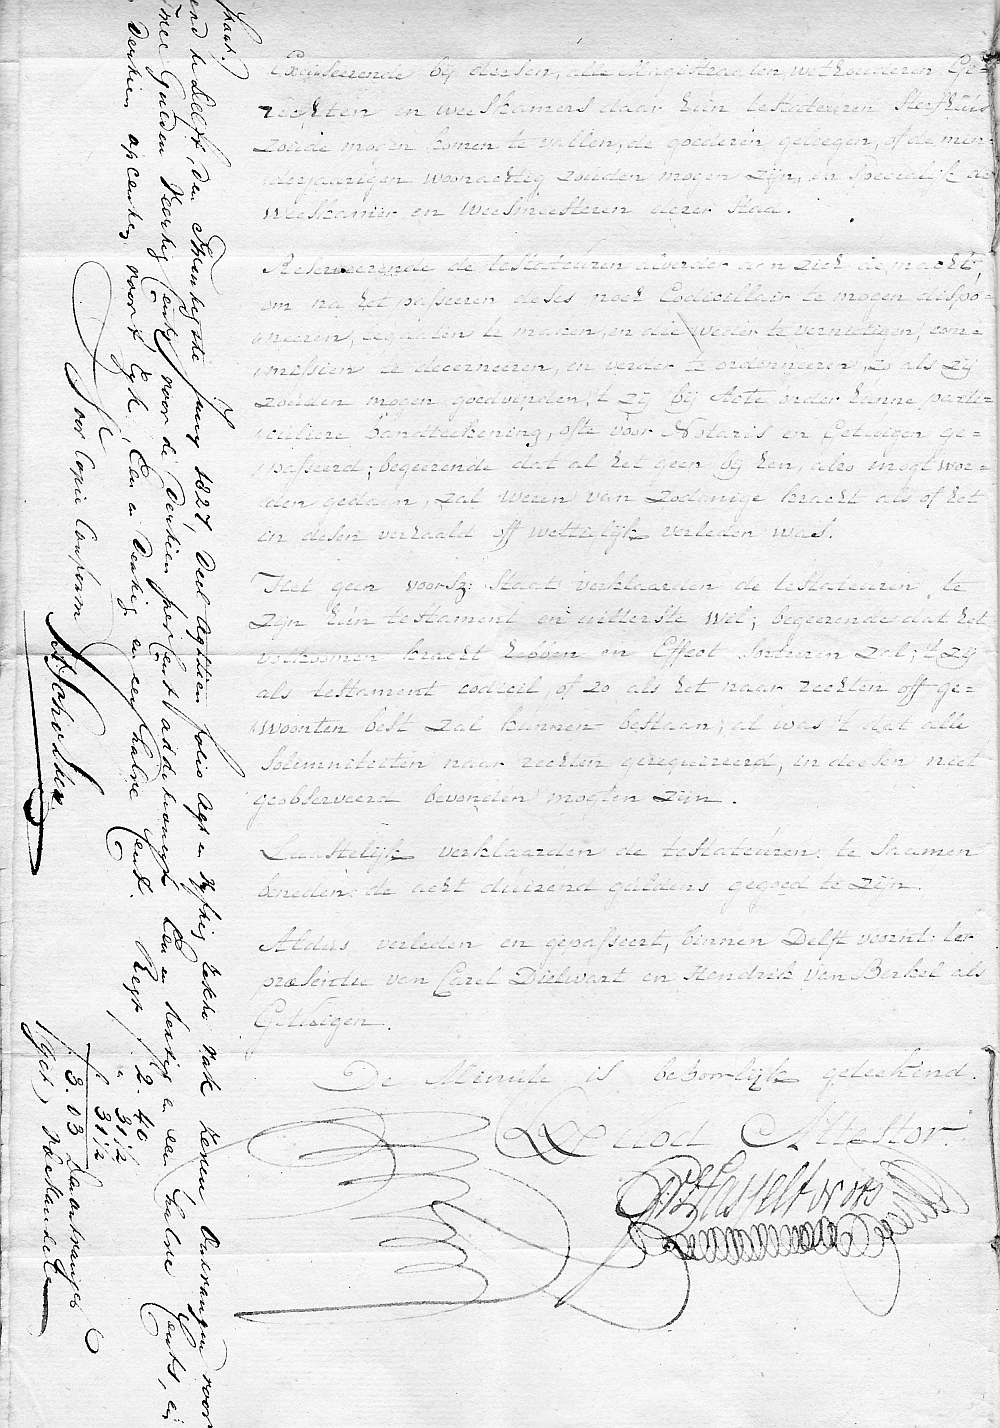 Excuseerende bij deesen, alle Magistraaten, wethouderen Ge=
rechten en weeskamers daar hún testateuren sterfhúis
zoúde mogen komen te vallen, de goederen gelegen, of de min=
derjaarigen woonachtig zoúden mogen zijn, en specialijk de
Weeskamer en Weesmeesteren dezer stad.
Reserveerende de testateúren alverder aan zich de macht,
om na het passeeren deses noch Codicillair te mogen dispo=
neeren, legaaten te maken, en die weder te vernietigen, com=
missien te decerneeren, en verder te ordonneeren, zo als zij
zoúden mogen goedvinden, 't zij bij Acte onder hanne parti=
culiere handteekening, ofte voor Notaris en Getuigen ge=
passeerd; begeerende dat al het geen bij hen, alzo mogt wor=
den gedaan, zal weren van zodanige kracht als of het
in desen verhaald off wettelijk verleden was.
Het geen voorsz: staat verklaarden de testateuren te
zijn hún testament en uitterste wil; begeerende dat het
volkoomen kracht hebben en Effect sorteren zal, 't zij
als testament codicil, of zo als het naar rechten off ge=
woonten best zal kunnen bestaan; al was 't dat alle
solemniteiten naar rechten gerequireerd, in deesen niet
geobserveerd bevonden mogten zijn.
Laastelijk verklaarden de testateúren te samen
beneden de acht dúizend guldens gegoed te zijn.
Aldus verleden en gepasseert, binnen Delft voornt: ter
præsentie van Carel Dielwart en Hendrik van Berkel als
Getúigen.
De Minute is behoorlijk geteekend.
Quod Attestor
staat.
te Delft den Twintigste Juny 1827, Deel Agttien folio Agt en Vyftig Recto vak een Ontvangen voor
Twee Gulden Veertig Cents voor de Dertien per Cent additioneel Een en dertig en een halve Cents, en
Dertien opcenten, voor 't Zegel, Een en Dertig en een halve Cent. Regt f 2.40
" 31½
" 31½
f 3.03 De ontvanger
/get/
Voor Copie Conform
Scholten